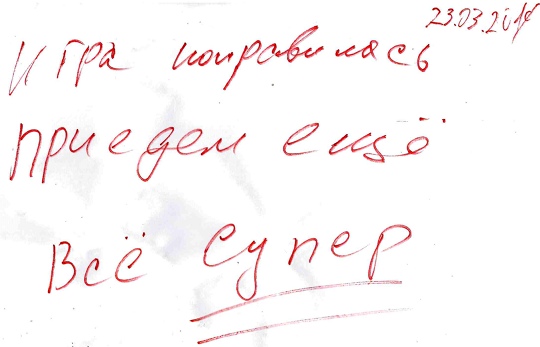 23.03.2014
игра понравилась
приедем ещё
Всё супер